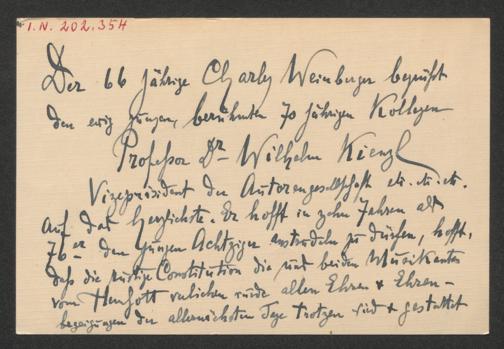 I.N. 202.354
Der 66 jährige Charley Weinberger begrüßt
den ewig jungen, berühmten 70 jährigen Kollegen
Professor Dr Wilhelm Kienzl
Vizepräsident der Autorengesellschaft etc. etc. etc.
auf das Herzlichste. Er hofft in zehn Jahren als
76er den jungen Achtziger zu dürfen, hofft,
daß die rüstige Constitution die uns beiden Musikanten
vom Herrgott verliehen wurde allen Ehren & Ehren-
bezeigungen der allernächsten Tage trotzen wird &